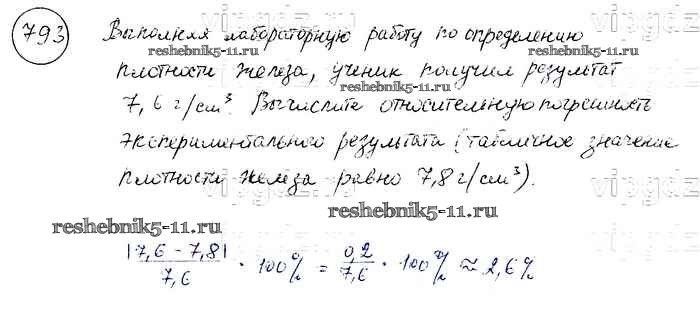 793 Выполняя лабораторную работу по определению
reshebnik5-11.ru
reshebnik5-11.ru
плотности железа, ученик получил результат
7,6 г/см³. Вычислите относительную погрешность
vipgdz
экспериментального результата (табличное значение
плотности железа равно 7,8 г/см³).
vipgdz
reshebnik5-11.ru
reshebnik5-11.ru
|7,6 - 7,8| / 7,6 · 100% = 0,2 / 7,6 · 100% ≈ 2,6%